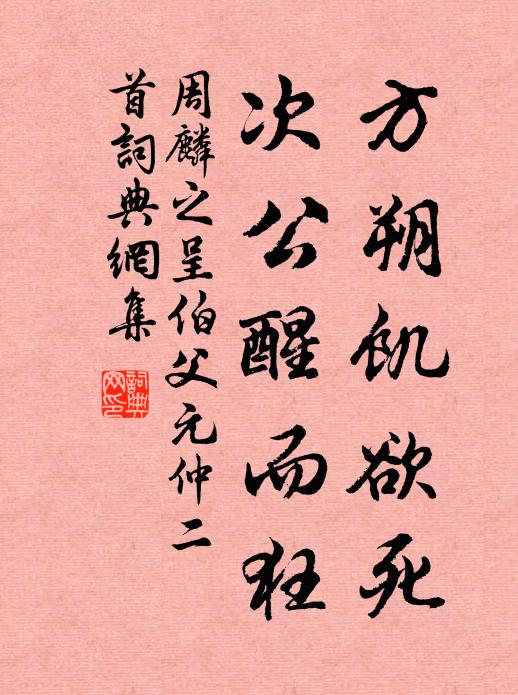 方朔飢欲死
次公醒而狂
周麟之呈伯父元仲二
首詞典網集
詞典
网印